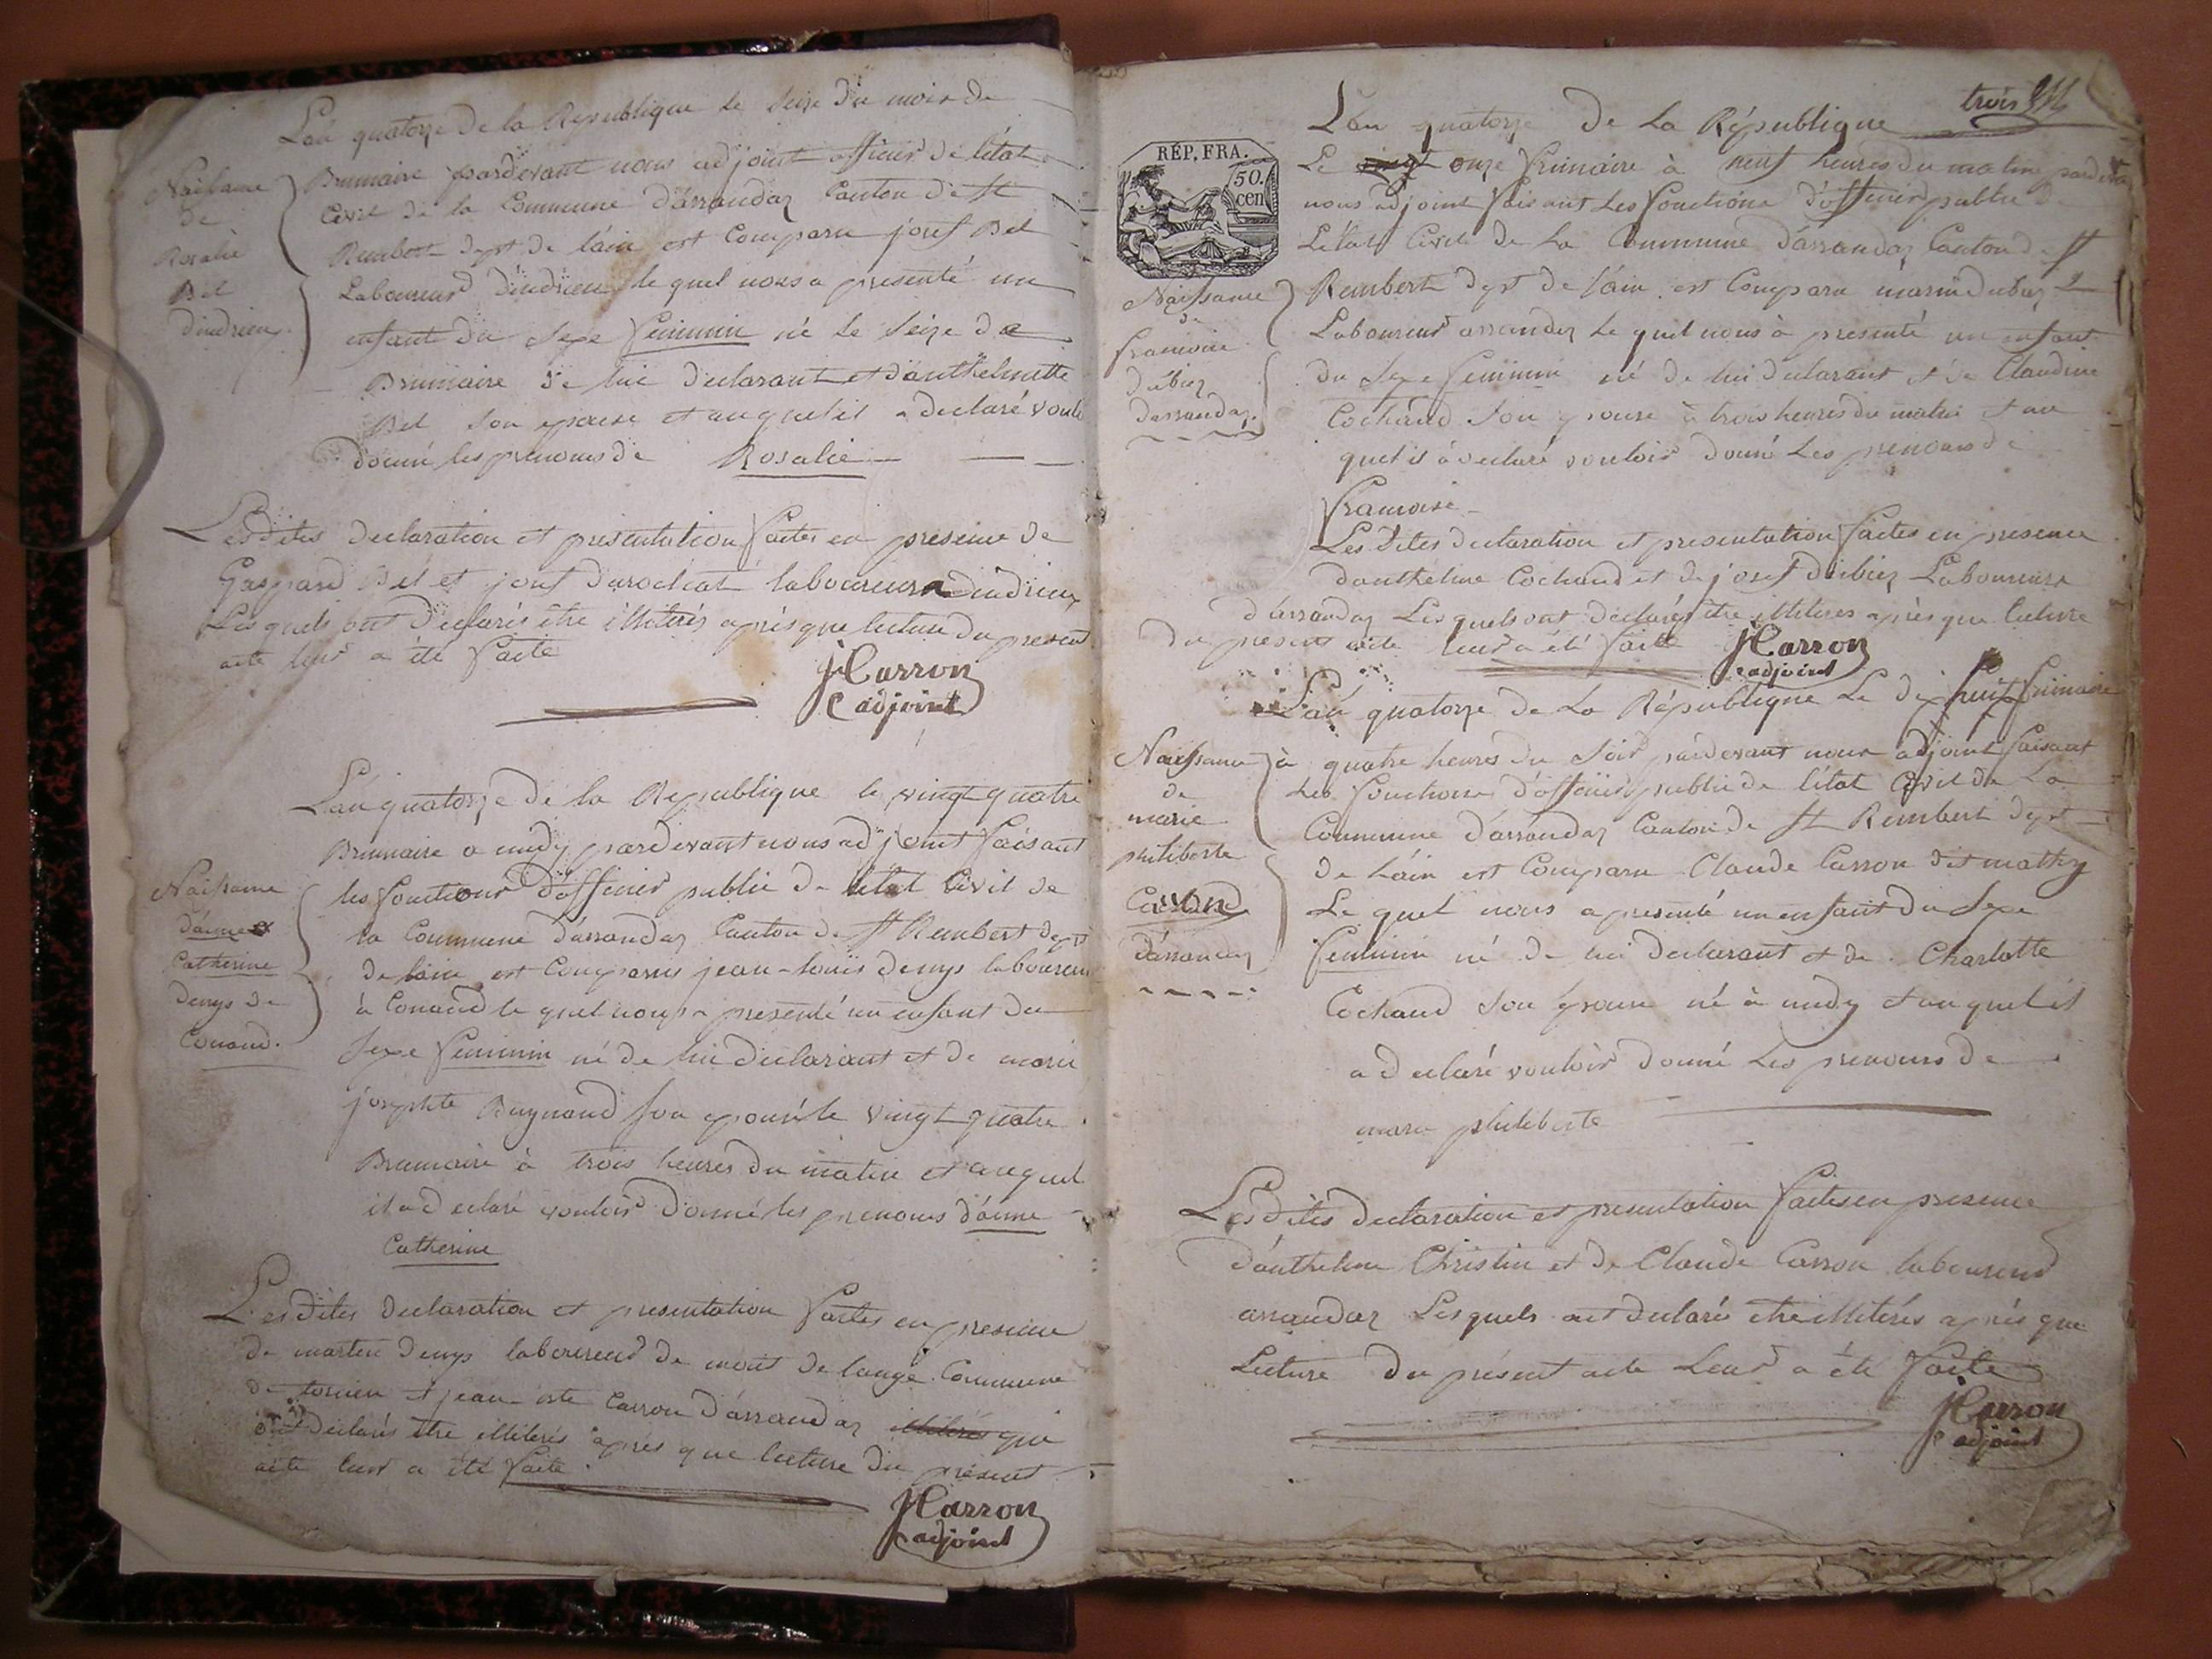 L'an quatorze de la Republique le seize du mois de
Brumaire pardevant nous adjoint officier de l'état
Civil de la Commune d'arrandaz Canton de St
Rembert dept de l'ain est Comparu josef Bel
Laboureur d'indrieu le quel nous a presenté un
enfant du sexe feminin né le seize de
Brumaire de lui declarant et d'anthelmette
Bel son epouse et auquel il a declaré voulo
donné les prenoms de Rosalie
Naissance
de
Rosalie
Bel
dindrieu.
Les dites declaration et presentation faites en presence de
Gaspard Bel et josef durochat laboureurs dindrieu
Les quels ont declarés être illiterés après que lecture du present
acte leur a été faite
JCarron
adjoint
L'an quatorze de la Republique le vingt quatre
Brumaire a midy pardevant nous adjoint faisant
les fonctions d'officier public de l'état Civil de
la Commune d'arrandaz Canton de St Rembert dept
de l'ain est Comparus jean-louis denys laboureur
à Conand le quel nous a presenté un enfant du
sexe feminin né de lui declarant et de marie
josephte Reynaud son epouse le vingt quatre
Brumaire à trois heures du matin et auquel
il a declaré vouloir donné les prenoms d'anne
Catherine
Naissance
d'anne
Catherine
denys de
Conand.
Les dites declaration et presentation faites en presence
de martin denys laboureur de mont de lange Commune
de torcieu et jean-bte Carron d'arrandaz illiterés qui
ont declarés être illiterés après que lecture du présent
acte leur a été faite
JCarron
adjoint
trois
RÉP. FRA.
50.
cen
L'an quatorze de La République
Le vingt onze frimaire à neuf heures du matin pardevan
nous adjoint faisant Les fonctions d'officier public de
L'état Civil de La Commune d'arrandaz Canton de St
Rembert dept de l'ain est Comparu marin dubiez
Laboureur arrandaz le quel nous à presenté un enfant
du sexe feminin né de lui declarant et de Claudine
Cochand son epouse à trois heures du matin et au
quel il à declaré vouloir donné Les prenoms de
francoise
Naissance
de
francoise
dubiez
darrandaz.
Les dites declaration et presentation faites en presence
d'anthelme Cochand et de josef dubiez Laboureurs
d'arrandaz Les quels ont declarés être illiterés après que lecture
du present acte leur a été faite
JCarron
adjoint
L'an quatorze de La République Le dix huit frimaire
à quatre heures du soir pardevant nous adjoint faisant
Les fonctions d'officier public de l'état Civil de La
Commune d'arrandaz Canton de St Rembert dept
de L'ain est Comparu Claude Carron dit mathy
Le quel nous a presenté un enfant du sexe
feminin né de lui declarant et de Charlotte
Cochand son epouse né à midy et auquel il
a declaré vouloir donné Les prenoms de
marie philiberte
Naissance
de
marie
philiberte
Carron
d'arrandaz
Les dites declaration et presentation faites en presence
d'anthelme Christin et de Claude Carron laboureur
arrandaz Lesquels ont declarés être illiterés après que
Lecture du présent acte Leur a été faite
JCarron
adjoint